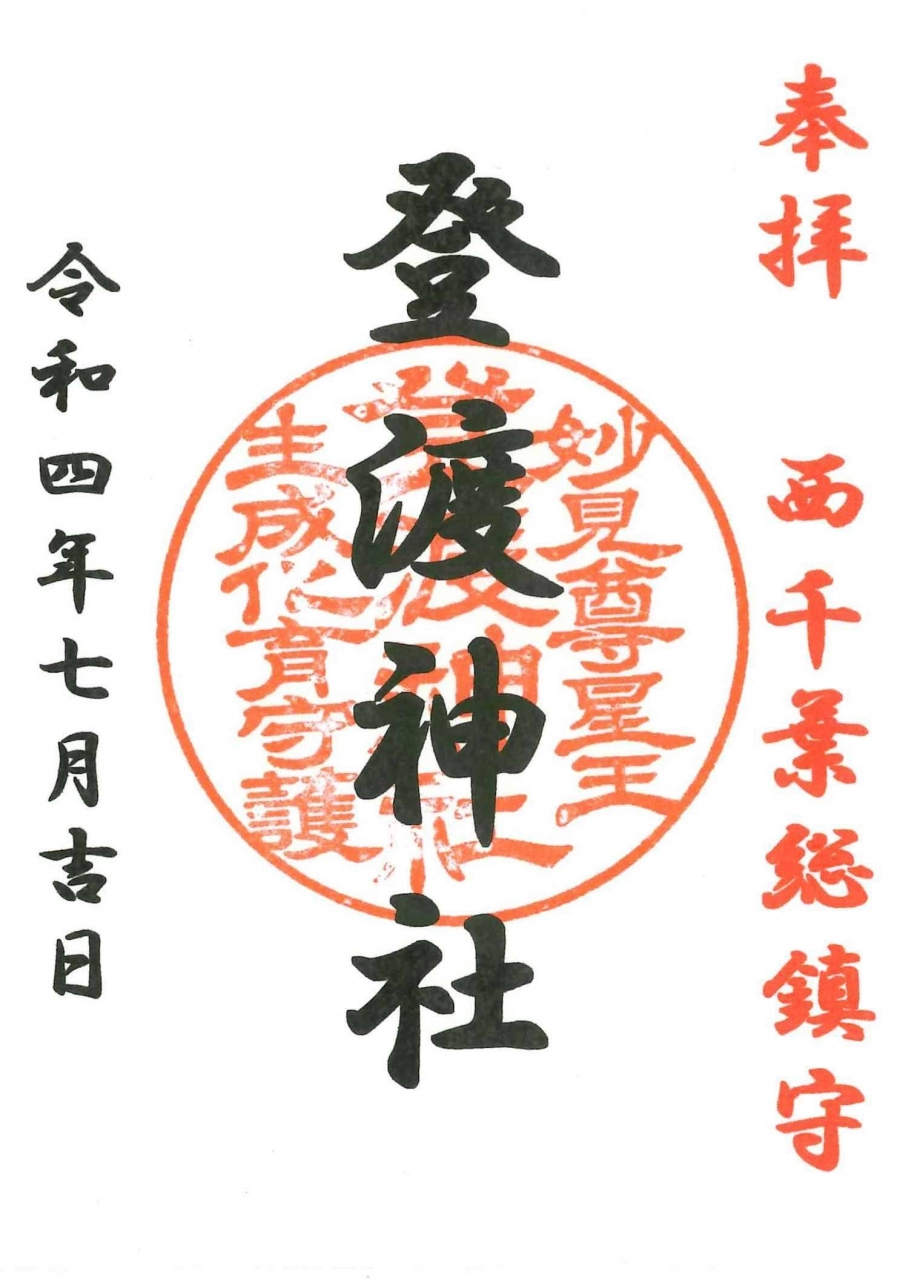 奉拝　西千葉総鎮守
登渡神社
妙見尊星王
登渡神社
生成化育守護
令和四年七月吉日